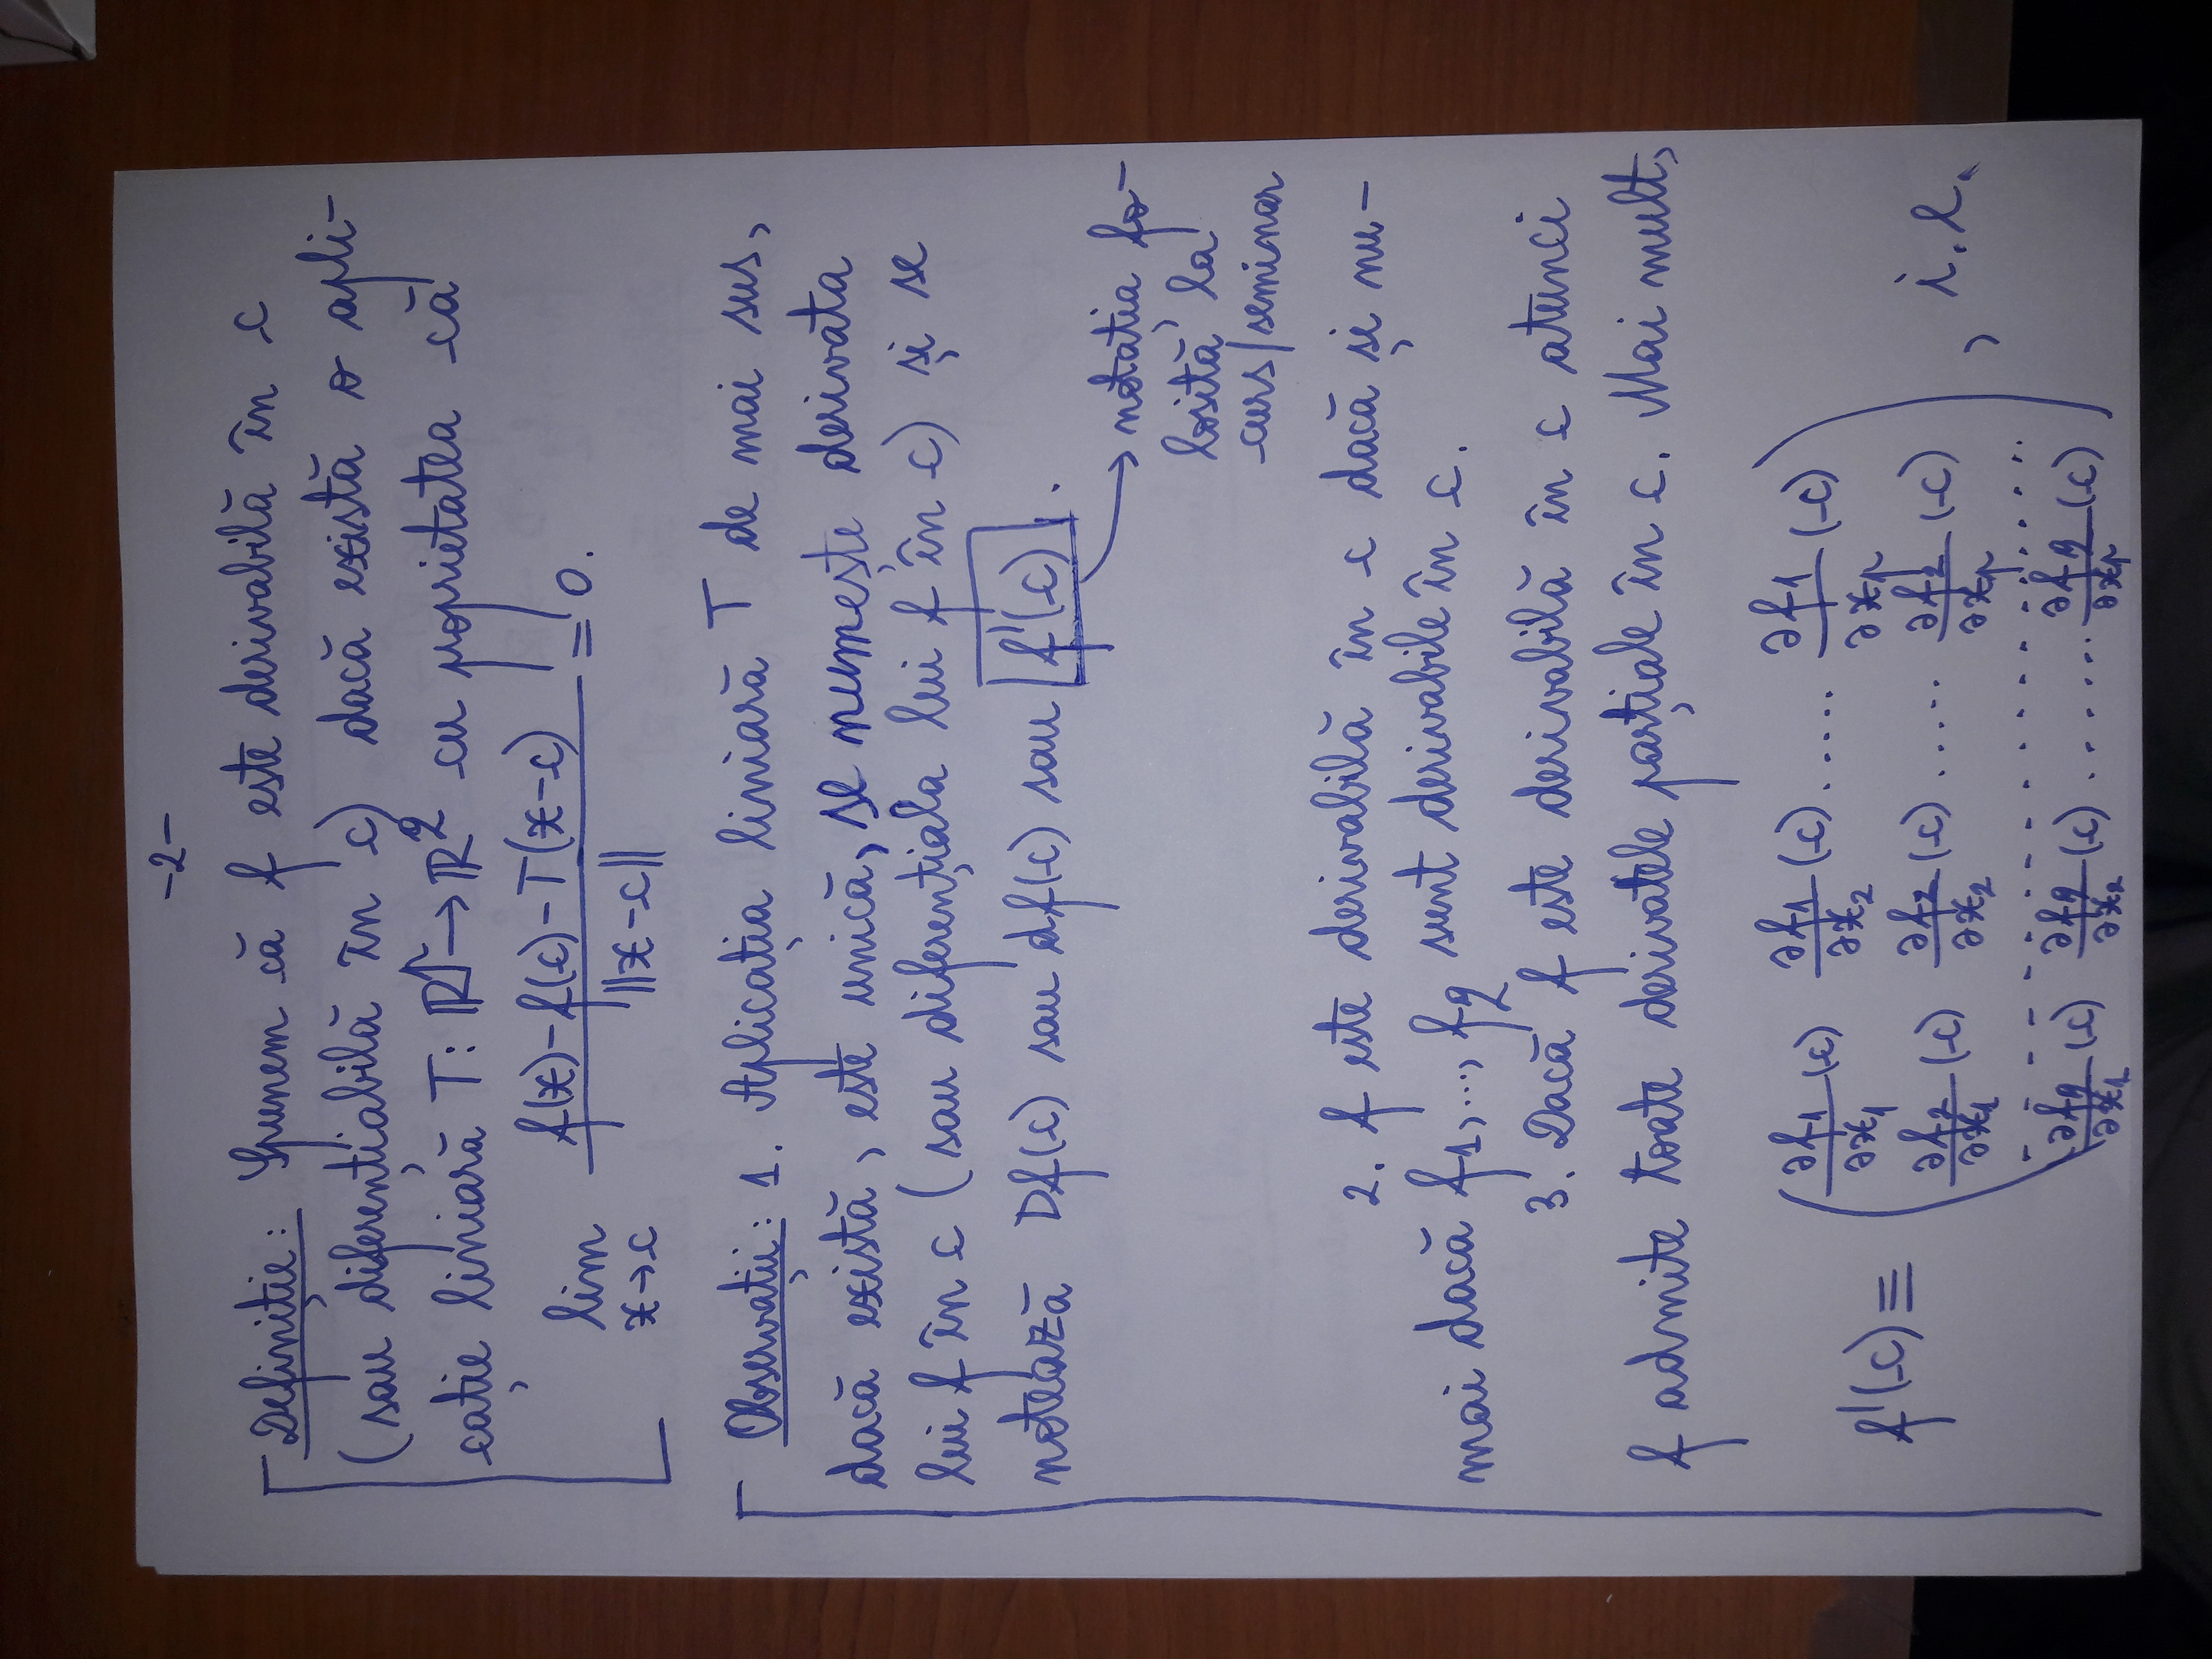 -2-
Definiție: Spunem că f este derivabilă în c
(sau diferențiabilă în c) dacă există o apli-
cație liniară T: ℝ^p → ℝ^q cu proprietatea că
lim_{x→c} (f(x)-f(c)-T(x-c))/||x-c|| = 0.
Observații: 1. Aplicația liniară T de mai sus,
dacă există, este unică, se numește derivata
lui f în c (sau diferențiala lui f în c) și se
notează Df(c) sau df(c) sau f'(c).
→ notația fo-
losită la
curs/seminar
2. f este derivabilă în c dacă și nu-
mai dacă f₁,..., f_q sunt derivabile în c.
3. Dacă f este derivabilă în c atunci
f admite toate derivatele parțiale în c. Mai mult,
∂f₁/∂x₁(c) ∂f₁/∂x₂(c) ..... ∂f₁/∂x_p(c)
f'(c) ≡ ∂f₂/∂x₁(c) ∂f₂/∂x₂(c) ..... ∂f₂/∂x_p(c) , i.e.
..................
∂f_q/∂x₁(c) ∂f_q/∂x₂(c) ....... ∂f_q/∂x_p(c)